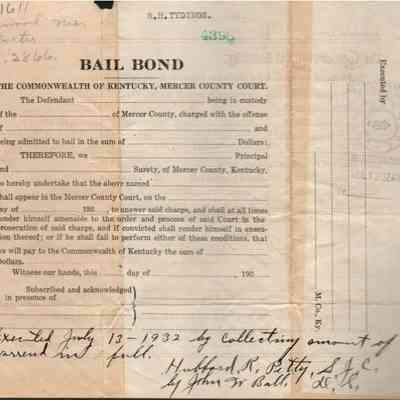 1611
2866.
R.H. TYDINGS.
4396
BAIL BOND
THE COMMONWEALTH OF KENTUCKY, MERCER COUNTY COURT.
The Defendant being in custody
of the of Mercer County, charged with the offense
of and
being admitted to bail in the sum of Dollars:
THEREFORE, we Principal
and Surety, of Mercer County, Kentucky,
do hereby undertake that the above named
shall appear in the Mercer County Court, on the
day of 190 , to answer said charge, and shall at all times
render himself amenable to the order and process of said Court in the
prosecution of said charge, and if convicted shall render himself in execu-
tion thereof; or if he shall fail to perform either of these conditions, that
we will pay to the Commonwealth of Kentucky the sum of
Dollars.
Witness our hands, this day of 190
Subscribed and acknowledged
in presence of
Executed by
M. Co., Ky.
Executed July 13-1932 by collecting amount of
in full.
Hubbard R. Petty, S. M. C.
By John W Ball. D. S.